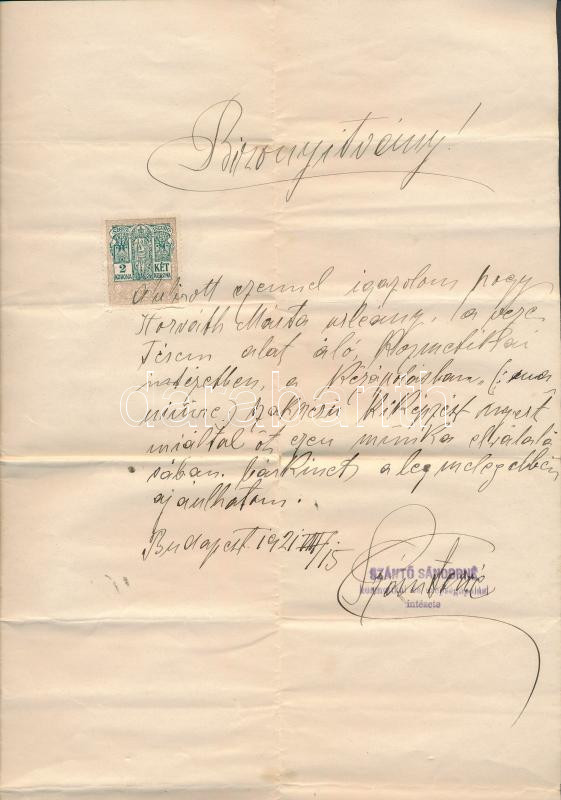 Bizonyitvány!
2
KORONA
KÉT
KORONA
Alulirott ezennel igazolom hogy
Horváth Márta urleány, a veze-
tésem alat áló, Kozmetikai
intézetben, a Kézápolásban, (: ma
nicüre :) szakszerü kiképzést nyert
miáltal őt ezen munka ellátá
sában. bárkinek a legmelegebben
ajánlhatom.
Budapest 1921 VIII/15
Szántóné
SZÁNTÓ SÁNDORNÉ
kozmetikai és szépségápolási
intézete
darabanth